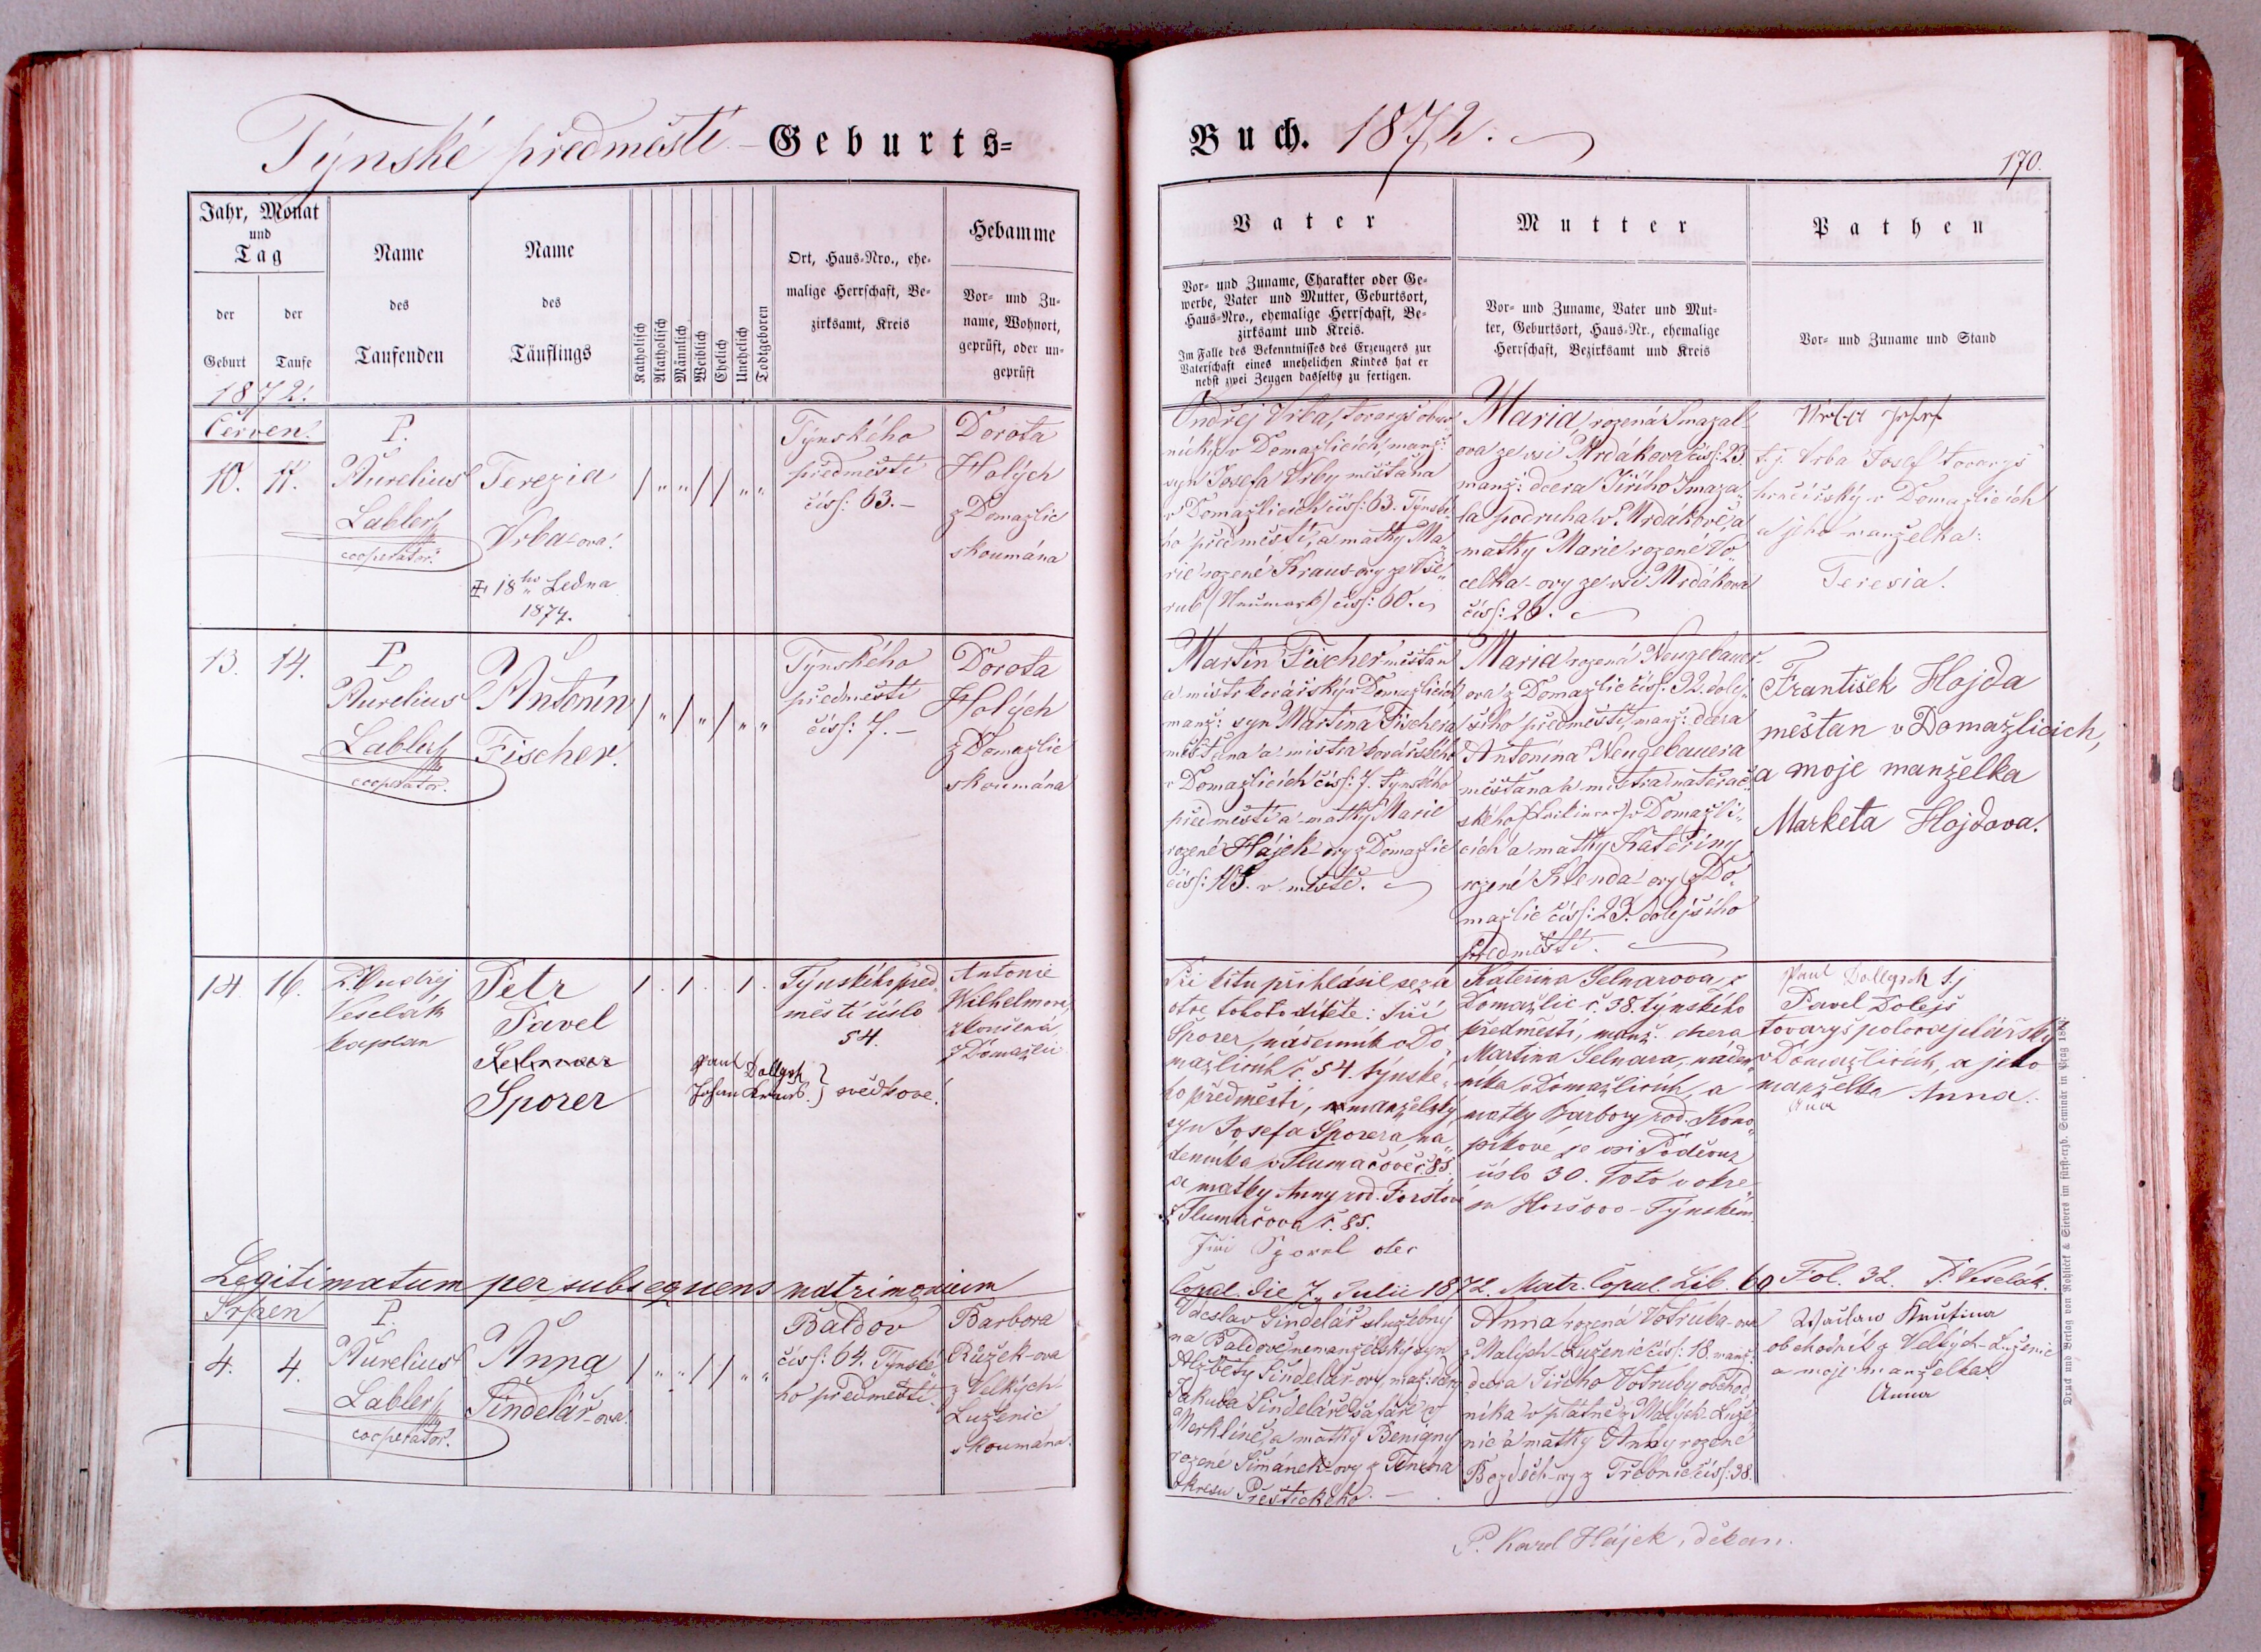 Týnské předměstí - Geburts=
Buch. 1872.
170.
Jahr, Monat
und
Tag
der
Geburt
der
Taufe
Name
des
Taufenden
Name
des
Täuflings
Katholisch
Akatholisch
Männlich
Weiblich
Ehelich
Unehelich
Todtgeboren
Ort, Haus=Nro., ehe=
malige Herrschaft, Be=
zirksamt, Kreis
Hebamme
Vor= und Zu=
name, Wohnort,
geprüft, oder un=
geprüft
Vater
Vor= und Zuname, Charakter oder Ge=
werbe, Vater und Mutter, Geburtsort,
Haus=Nro., ehemalige Herrschaft, Be=
zirksamt und Kreis.
Im Falle des Bekenntnisses des Erzeugers zur
Vaterschaft eines unehelichen Kindes hat er
nebst zwei Zeugen dasselbe zu fertigen.
Mutter
Vor= und Zuname, Vater und Mut=
ter, Geburtsort, Haus=Nr., ehemalige
Herrschaft, Bezirksamt und Kreis
Pathen
Vor= und Zuname und Stand
1872.
Červen.
10. 11.
P.
Aurelius
Labler
cooperator.
Terezia
Vrba-ova.
18ho Ledna
1874.
Týnského
předměstí
čís: 63.-
Dorota
Holých
z Domažlic
skoumána
Ondřej Vrba, tovaryš obuv
nický v Domažlicích, manž:
syn Josefa Vrby měšťana
v Domažlicích čís: 63. Týnské
ho předměstí, a matky Ma
rie rozené Kraus-ovy ze Vše
rub (Neumark) čís: 60.
Maria, rozená Smazal
ova ze vsi Mrdákova čís: 23.
manž: dcera Jiřího Smaza
la podruha v Mrdákově, a
matky Marie rozené Vo
celka-ovy ze vsi Mrdákova
čís: 26.
Vrba Josef
t.j. Vrba Josef tovaryš
hračířský v Domažlicích
a jeho manželka:
Teresia.
13. 14.
P.
Aurelius
Labler
cooperator.
Antonín
Fischer.
Týnského
předměstí
čís: 7.-
Dorota
Holých
z Domažlic
skoumána
Martin Fischer měšťan
a mistr kovářský v Domažlicích
manž: syn Martina Fischera
měšťana a mistra kovářského
v Domažlicích čís: 7. týnského
předměstí a matky Marie
rozené Hájek-ovy z Domažlic
čís: 105. v městě.
Maria rozená Neugebauer-
ova z Domažlic čís: 92. dolej
šího předměstí, manž: dcera
Antonína Neugebauera
měšťana a mistra natěrač
ského v Domažli
cích a matky Kateřiny
rozené Klenda-ovy z Do
mažlic čís: 23. dolejšího
předměstí.
František Hojda
měšťan v Domažlicich,
a moje manželka
Marketa Hojdova.
14. 16.
P. Ondřej
Veselák
kaplan
Petr
Pavel
Selnar
Sporer
Týnského před
městí číslo
54.
Antonie
Wilhelmova,
zkoušená
z Domažlic
Paul Dollgsch
Johann Kraus } svědkové.
Při křtu přihlásil se za
otce tohoto dítěte: Jiří
Sporer, nádenník v Do
mažlicích č. 54. týnské
ho předměstí, manželský
syn Josefa Sporera, ná
denníka v Tlumačově č. 85.
a matky Anny rod. Forstové
z Tlumačova č. 85.
Jiří Sporel otec
Kateřina Selnarova z
Domažlic č. 38. týnského
předměstí, manž. dcera
Martina Selnara, náden
níka v Domažlicích, a
matky Barbory rod. Kono
píkové ze vsi Poděvouz
číslo 30. Toto v okre
su Horšovo-Týnském.
Paul Dollgsch t.j
Pavel Dolejš
tovaryš
v Domažlicích, a jeho
manželka Anna.
Legitimatum per subsequens matrimonium
Copul. die 7. Julii 1872. Matr. Copul. Lib. Fol. 32. P. Veselák.
Srpen
4. 4.
P.
Aurelius
Labler
cooperator.
Anna
Šindelář-ova.
Baldov
čís: 64. Týnské
ho předměstí.
Barbora
Růžek-ova
z Velkých
Luženic
skoumána.
Václav Šindelář služebný
na Baldově nemanželský syn
Alžběty Šindelář-ovy, manž: dcery
Jakuba Šindeláře šafáře v
Merklíně, a matky Benigny
rozené Šimánek-ovy z Tinína
okresu Přestického.-
Anna rozená Votruba-ova
z Malých Luženic čís: 18. manž:
dcera Jiřího Votruby obchod
níka v plátně z Malých Luže
nic a matky Anny rozené
Bozděch-ovy z Třebnic čís: 38.
Wáclaw Knutina
obchodník z Velkých-Luženic
a moje manželka
Anna
P. Karel Hájek, děkan.
Druck und Verlag von Rohlíček & Sievers im fürst-erzb. Seminär in Prag